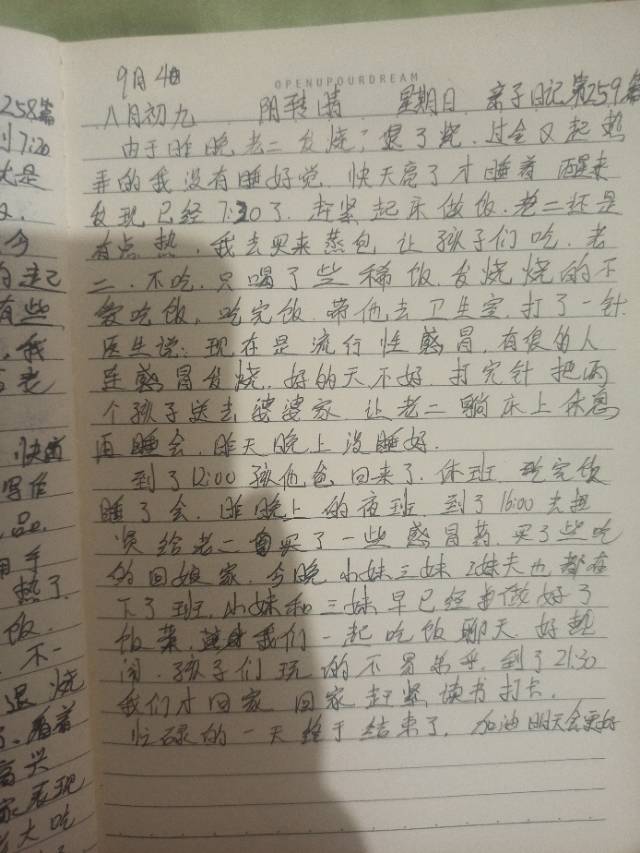 9月4日
OPENUPOURDREAM
八月初九 阴转晴 星期日 亲子日记第259篇
由于昨晚老二发烧,退了烧,过会又起热
弄的我没有睡好觉.快天亮了才睡着 醒来
发现已经7:30了.赶紧起床做饭.老二还是
有点热.我去买来蒸包让孩子们吃.老
二.不吃.只喝了些稀饭.发烧烧的不
爱吃饭.吃完饭.带他去卫生室.打了一针.
医生说:现在是流行性感冒.有很多人
连感冒发烧.好的天不好.打完针 把两
个孩子送去婆婆家 让老二躺床上休息
再睡会.昨天晚上没睡好.
到了12:00孩他爸回来了.休班 吃完饭
睡了会.昨晚上的夜班.到了16:00去赶
给老二买了一些感冒药.买了些吃
的回娘家.今晚小妹三妹 妹夫也都在
下了班.小妹和三妹早已经做好了
饭菜.我们一起吃饭聊天.好热
闹.孩子们玩的不亦乐乎.到了21:30
我们才回家 回家赶紧读书打卡.
忙碌的一天终于结束了.加油明天会更好
258篇
7:20
是
今
有些
我
快
写作
品
用手
热了
饭.
不一
退烧
看着
高兴
家表现
大吃